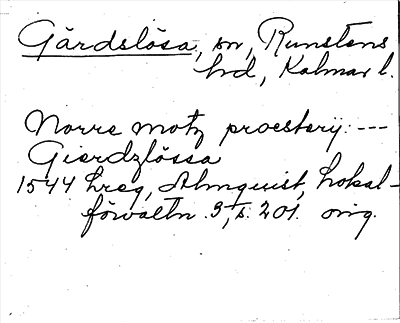 Gärdslösa, sn, Runstens
hd, Kalmar l.
Norre motz proestery: ---
Gierdzlössa
1544 hreg, Almquist, Lokal-
förvaltn. 3, s. 201. orig.